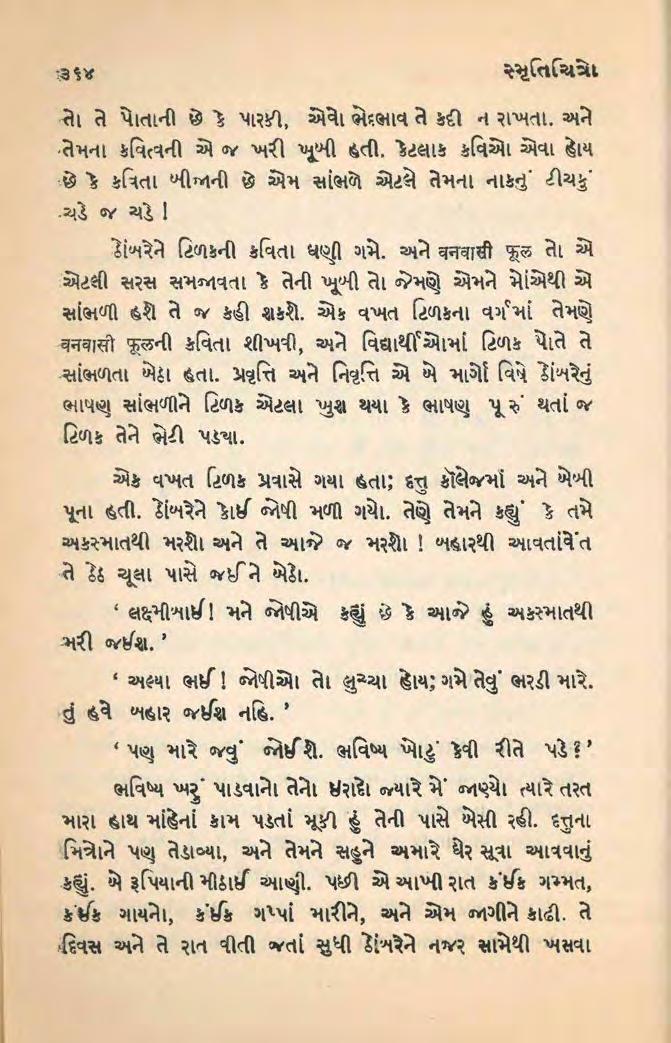 ૩૬૪ સ્મૃતિચિત્રો
તો તે પોતાની છે કે પારકી, એવો ભેદભાવ તે કદી ન રાખતા. અને
તેમના કવિત્વની એ જ ખરી ખૂબી હતી. કેટલાક કવિઓ એવા હોય
છે કે કવિતા બીજાની છે એમ સાંભળે એટલે તેમના નાકનું ટીચકું
ચડે જ ચડે !
ઠોંબરેને ટિળકની કવિતા ઘણી ગમે. અને वनवासी फूल તો એ
એટલી સરસ સમજાવતા કે તેની ખૂબી તો જેમણે એમને મોંએથી એ
સાંભળી હશે તે જ કહી શકશે. એક વખત ટિળકના વર્ગમાં તેમણે
वनवासी फूलની કવિતા શીખવી, અને વિદ્યાર્થીઓમાં ટિળક પોતે તે
સાંભળતા બેઠા હતા. પ્રવૃત્તિ અને નિવૃત્તિ એ બે માર્ગો વિષે ઠોંબરેનું
ભાષણ સાંભળીને ટિળક એટલા ખુશ થયા કે ભાષણ પૂરું થતાં જ
ટિળક તેને ભેટી પડ્યા.
એક વખત ટિળક પ્રવાસે ગયા હતા; દત્તુ કૉલેજમાં અને બેબી
પૂના હતી. ઠોંબરેને કોઈ જોષી મળી ગયો. તેણે તેમને કહ્યું કે તમે
અકસ્માતથી મરશો અને તે આજે જ મરશો ! બહારથી આવતાંવેંત
તે ઠેઠ ચૂલા પાસે જઈને બેઠો.
‘ લક્ષ્મીબાઈ! મને જોષીએ કહ્યું છે કે આજે હું અકસ્માતથી
મરી જઈશ. ’
‘ અલ્યા ભઈ ! જોષીઓ તો લુચ્ચા હોય; ગમે તેવું ભરડી મારે.
તું હવે બહાર જઈશ નહિ. ’
‘ પણ મારે જવું જોઈશે. ભવિષ્ય ખોટું કેવી રીતે પડે ? ’
ભવિષ્ય ખરું પાડવાનો તેનો ઇરાદો જ્યારે મેં જાણ્યો ત્યારે તરત
મારા હાથ માંહેનાં કામ પડતાં મૂકી હું તેની પાસે બેસી રહી. દત્તુના
મિત્રોને પણ તેડાવ્યા, અને તેમને સહુને અમારે ઘેર સૂવા આવવાનું
કહ્યું. બે રૂપિયાની મીઠાઈ આણી. પછી એ આખી રાત કંઈક ગમ્મત,
કંઈક ગાયનો, કંઈક ગપ્પાં મારીને, અને એમ જાગીને કાઢી. તે
દિવસ અને તે રાત વીતી જતાં સુધી ઠોંબરેને નજર સામેથી ખસવા